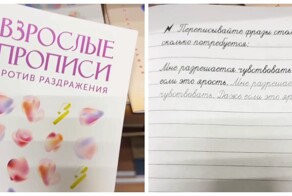 ВЗРОСЛЫЕ
ПРОПИСИ
РОТИВ РАЗДРАЖЕНИЯ
Переписывайте фразы стол
сколько потребуется:
Мне разрешается чувствовать
если это ярость. Мне разрешае
чувствовать. Даже если это яро